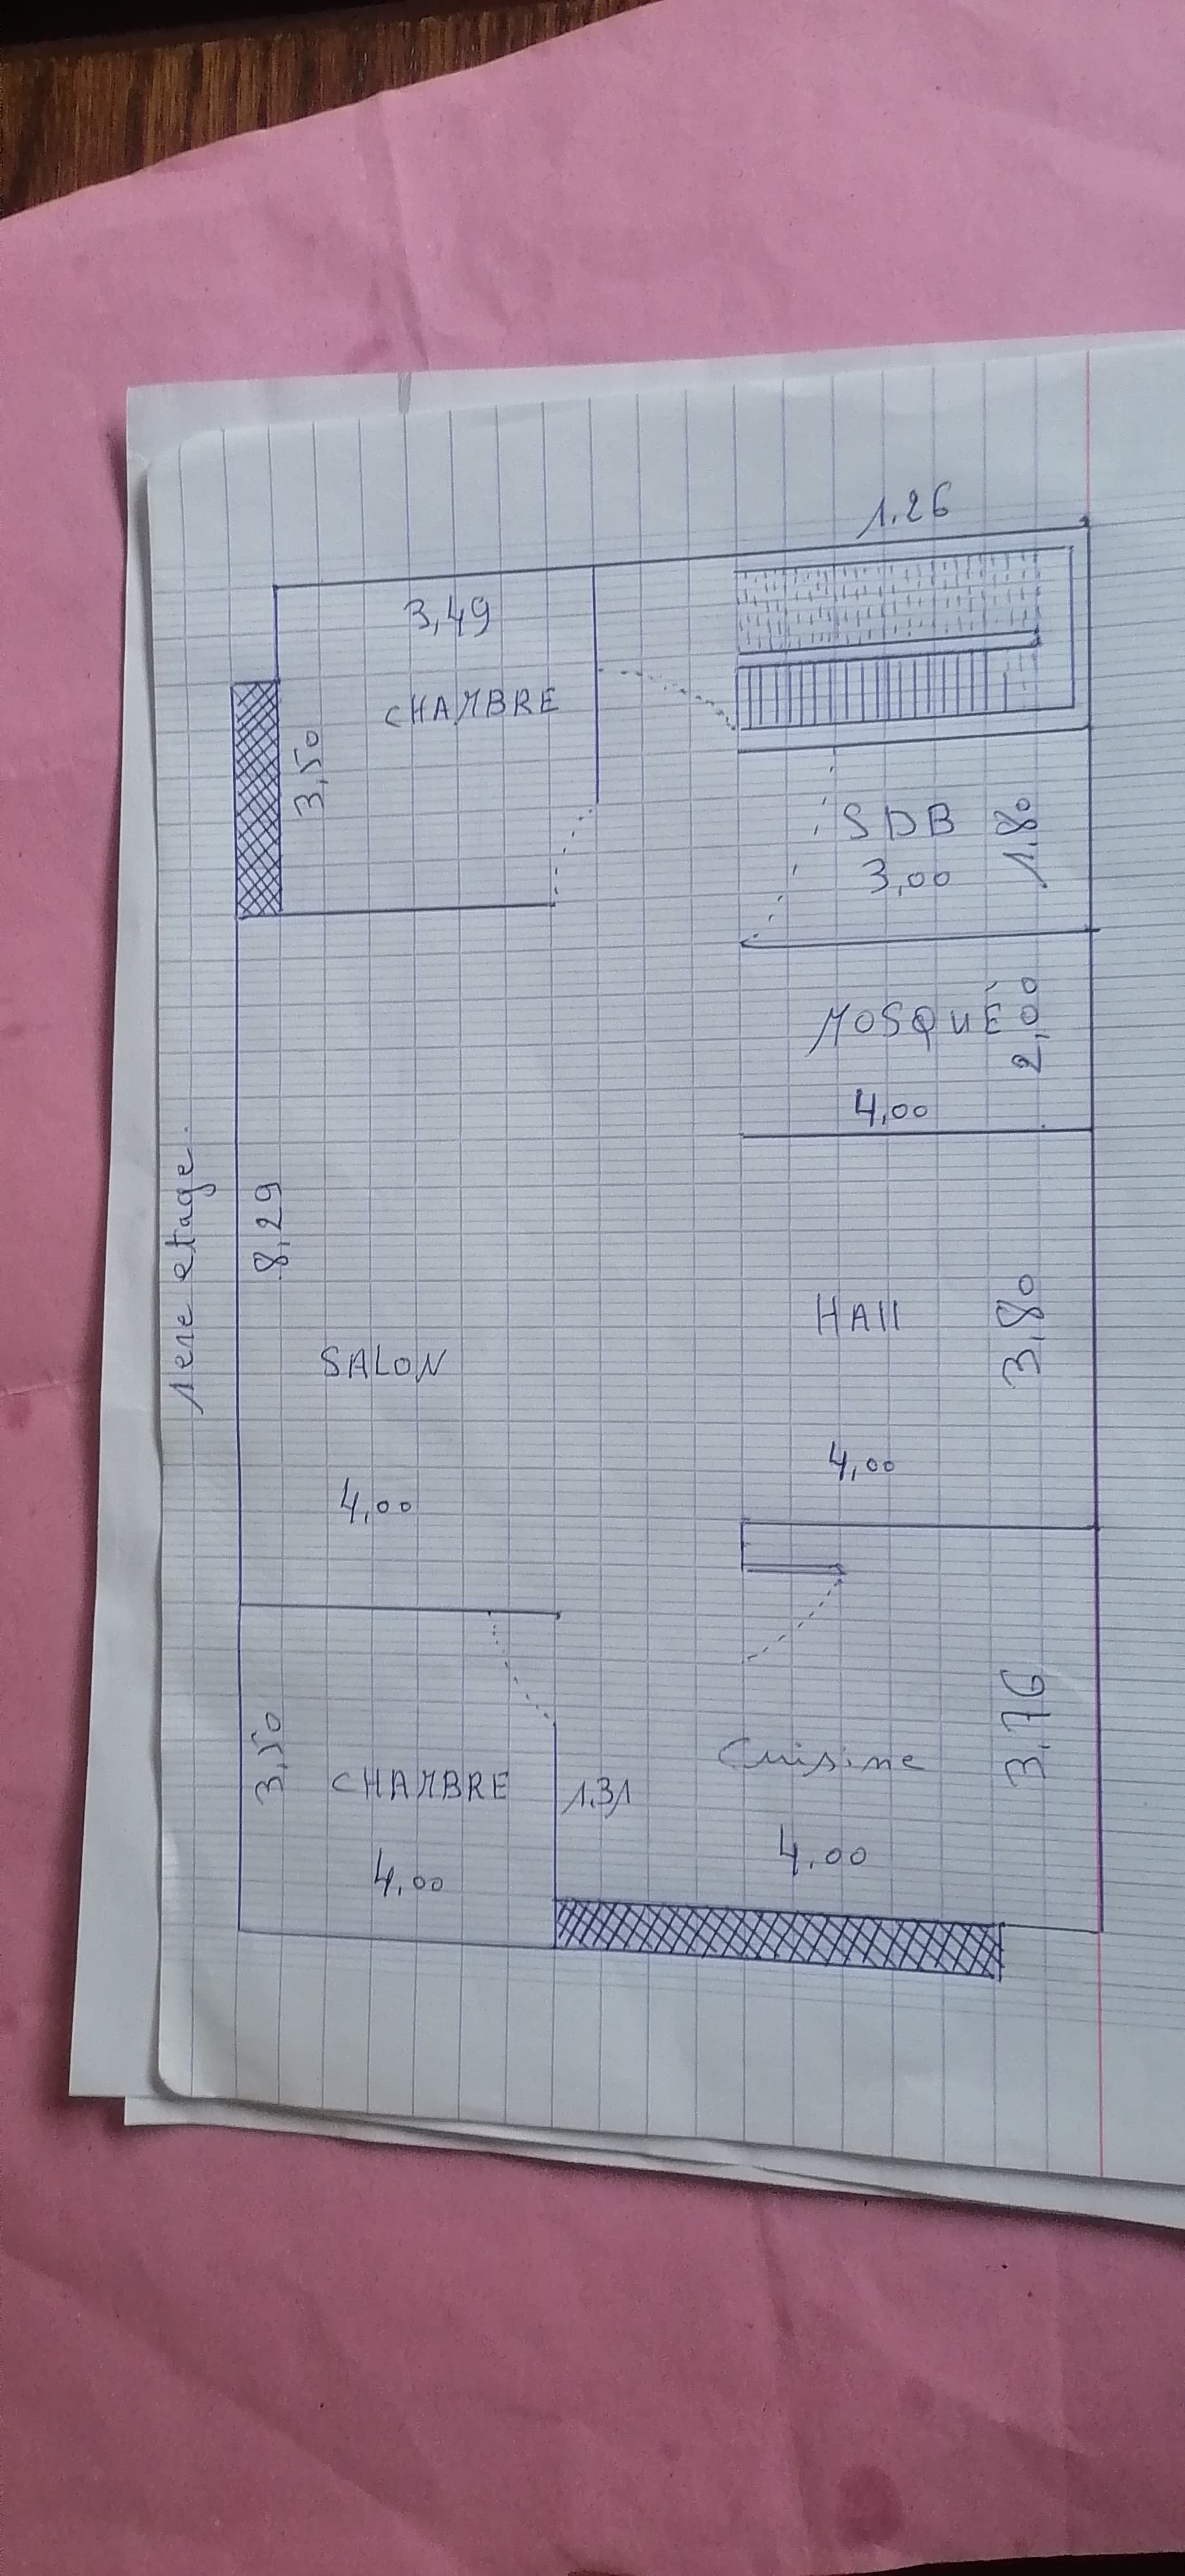 1ere etage.
1.26
3,49
CHAMBRE
3,50
SDB
3,00
1.80
MOSQUÉ
2,00
4,00
8,29
SALON
4,00
HAll
3,80
4,00
3,50
CHAMBRE
4,00
1.31
Cuisine
3,76
4,00